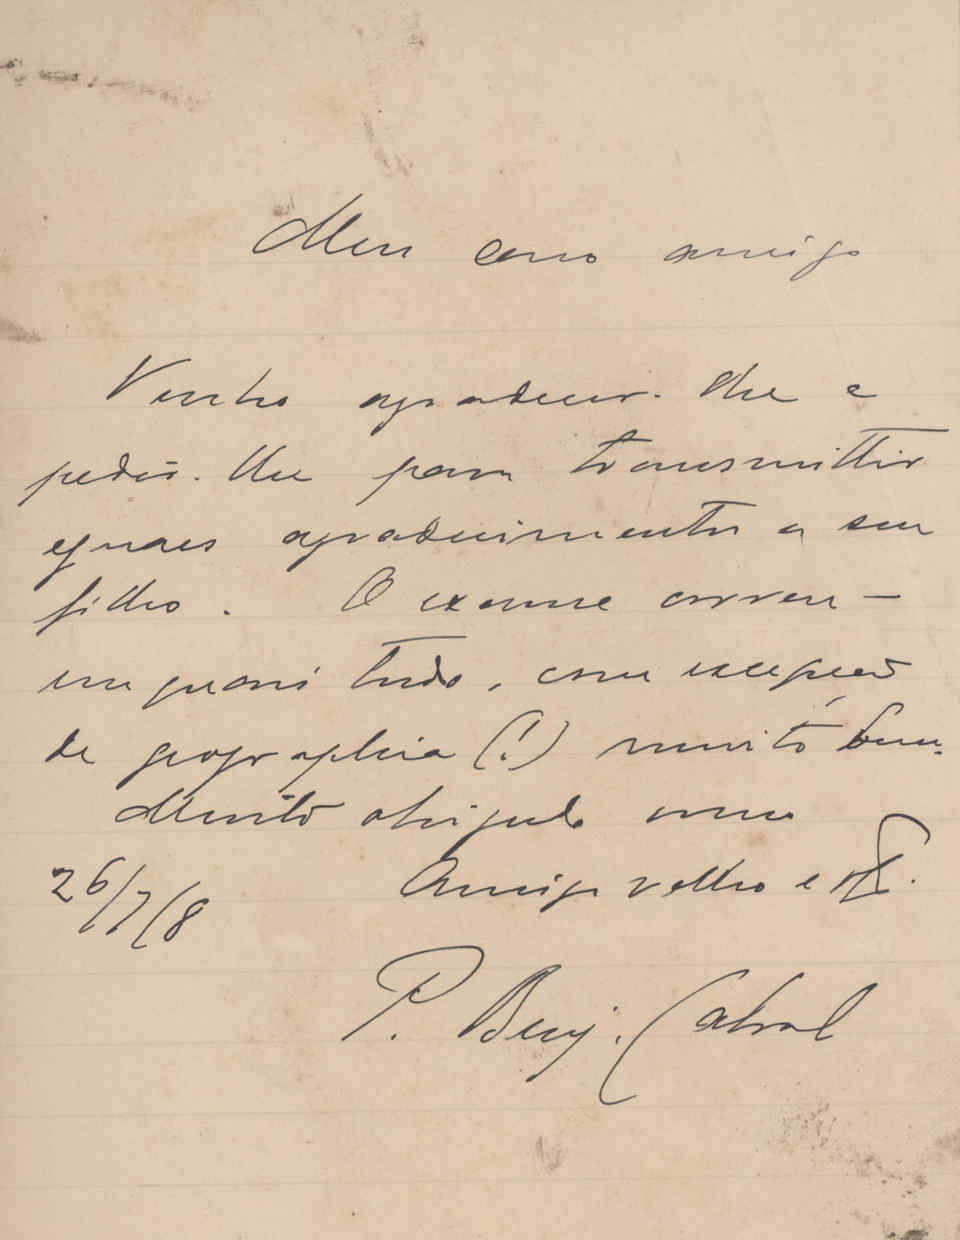 Meu caro amigo
Venho agradecer-lhe e
pedir-lhe para transmittir
eguaes agradecimentos a seu
filho. O exame correu -
em quasi tudo, com excepção
de geographia (!) muito bem.
Muito obrigado
26/7/8 Amigo velho e
P. Benj. Cabral